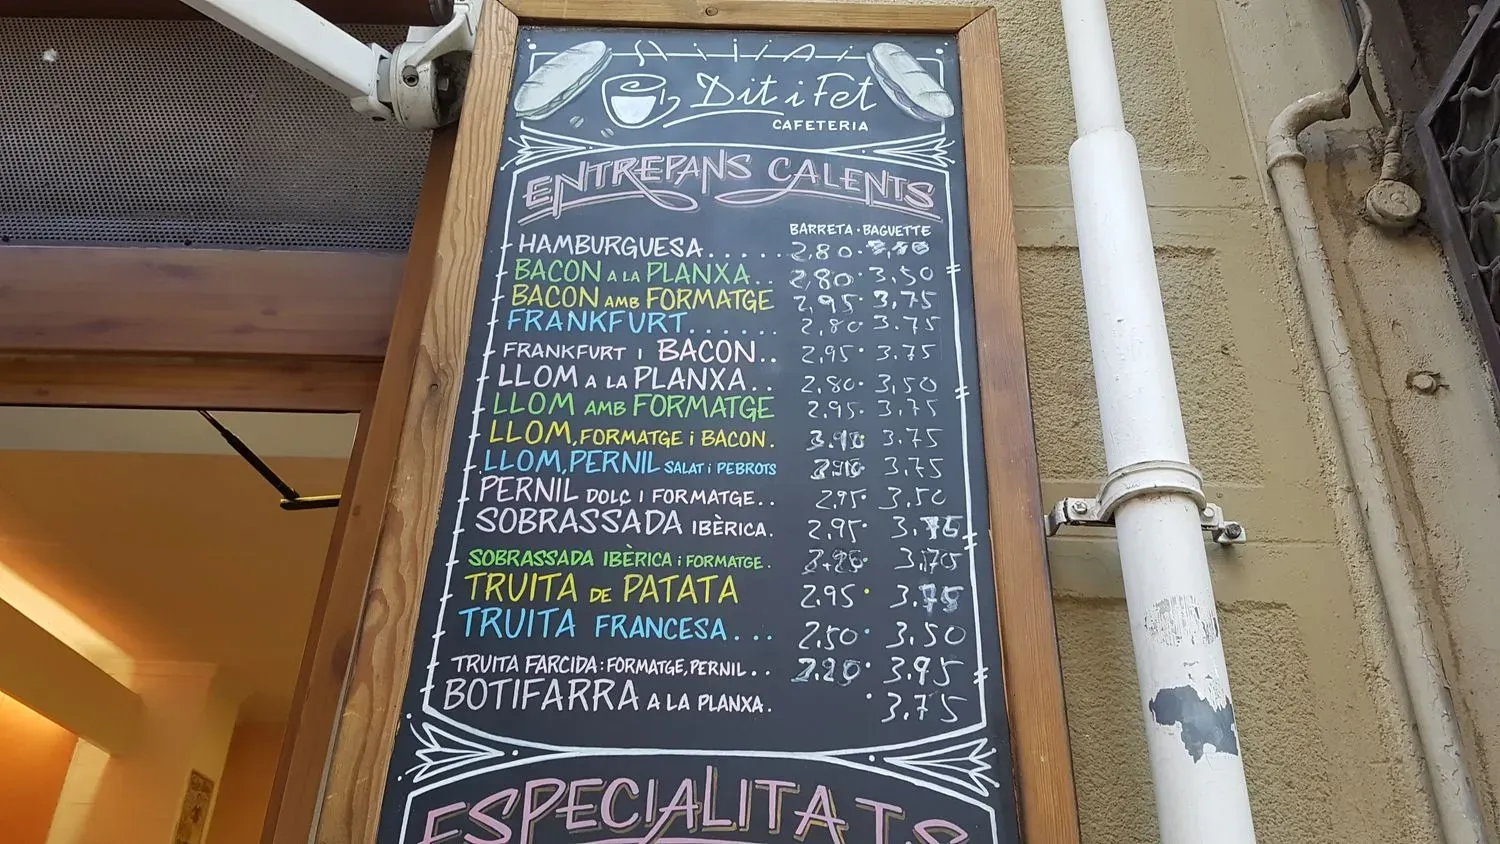 Dit i Fet
CAFETERIA
ENTREPANS CALENTS
BARRETA · BAGUETTE
HAMBURGUESA...... 2,80·
BACON A LA PLANXA.. 2,80· 3,50
BACON AMB FORMATGE 2,95· 3,75
FRANKFURT....... 2,80· 3.75
FRANKFURT I BACON.. 2,95· 3.75
LLOM A LA PLANXA.. 2,80· 3,50
LLOM AMB FORMATGE 2,95· 3,75
LLOM, FORMATGE i BACON. 3,75
LLOM, PERNIL SALAT i PEBROTS 3,75
PERNIL DOLÇ I FORMATGE.. 2,95· 3,50
SOBRASSADA IBÈRICA. 2,95· 3,75
SOBRASSADA IBÈRICA i FORMATGE.
TRUITA DE PATATA 2,95· 3,75
TRUITA FRANCESA... 2,50· 3,50
TRUITA FARCIDA: FORMATGE, PERNIL.. 3.95
BOTIFARRA A LA PLANXA. · 3.75
ESPECIALITATS